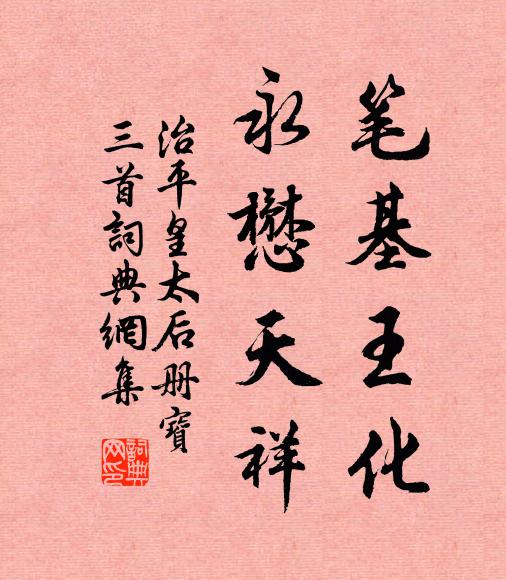 笔基王化
永懋天祥
治平皇太后册寶
三首詞典網集
詞典
网印